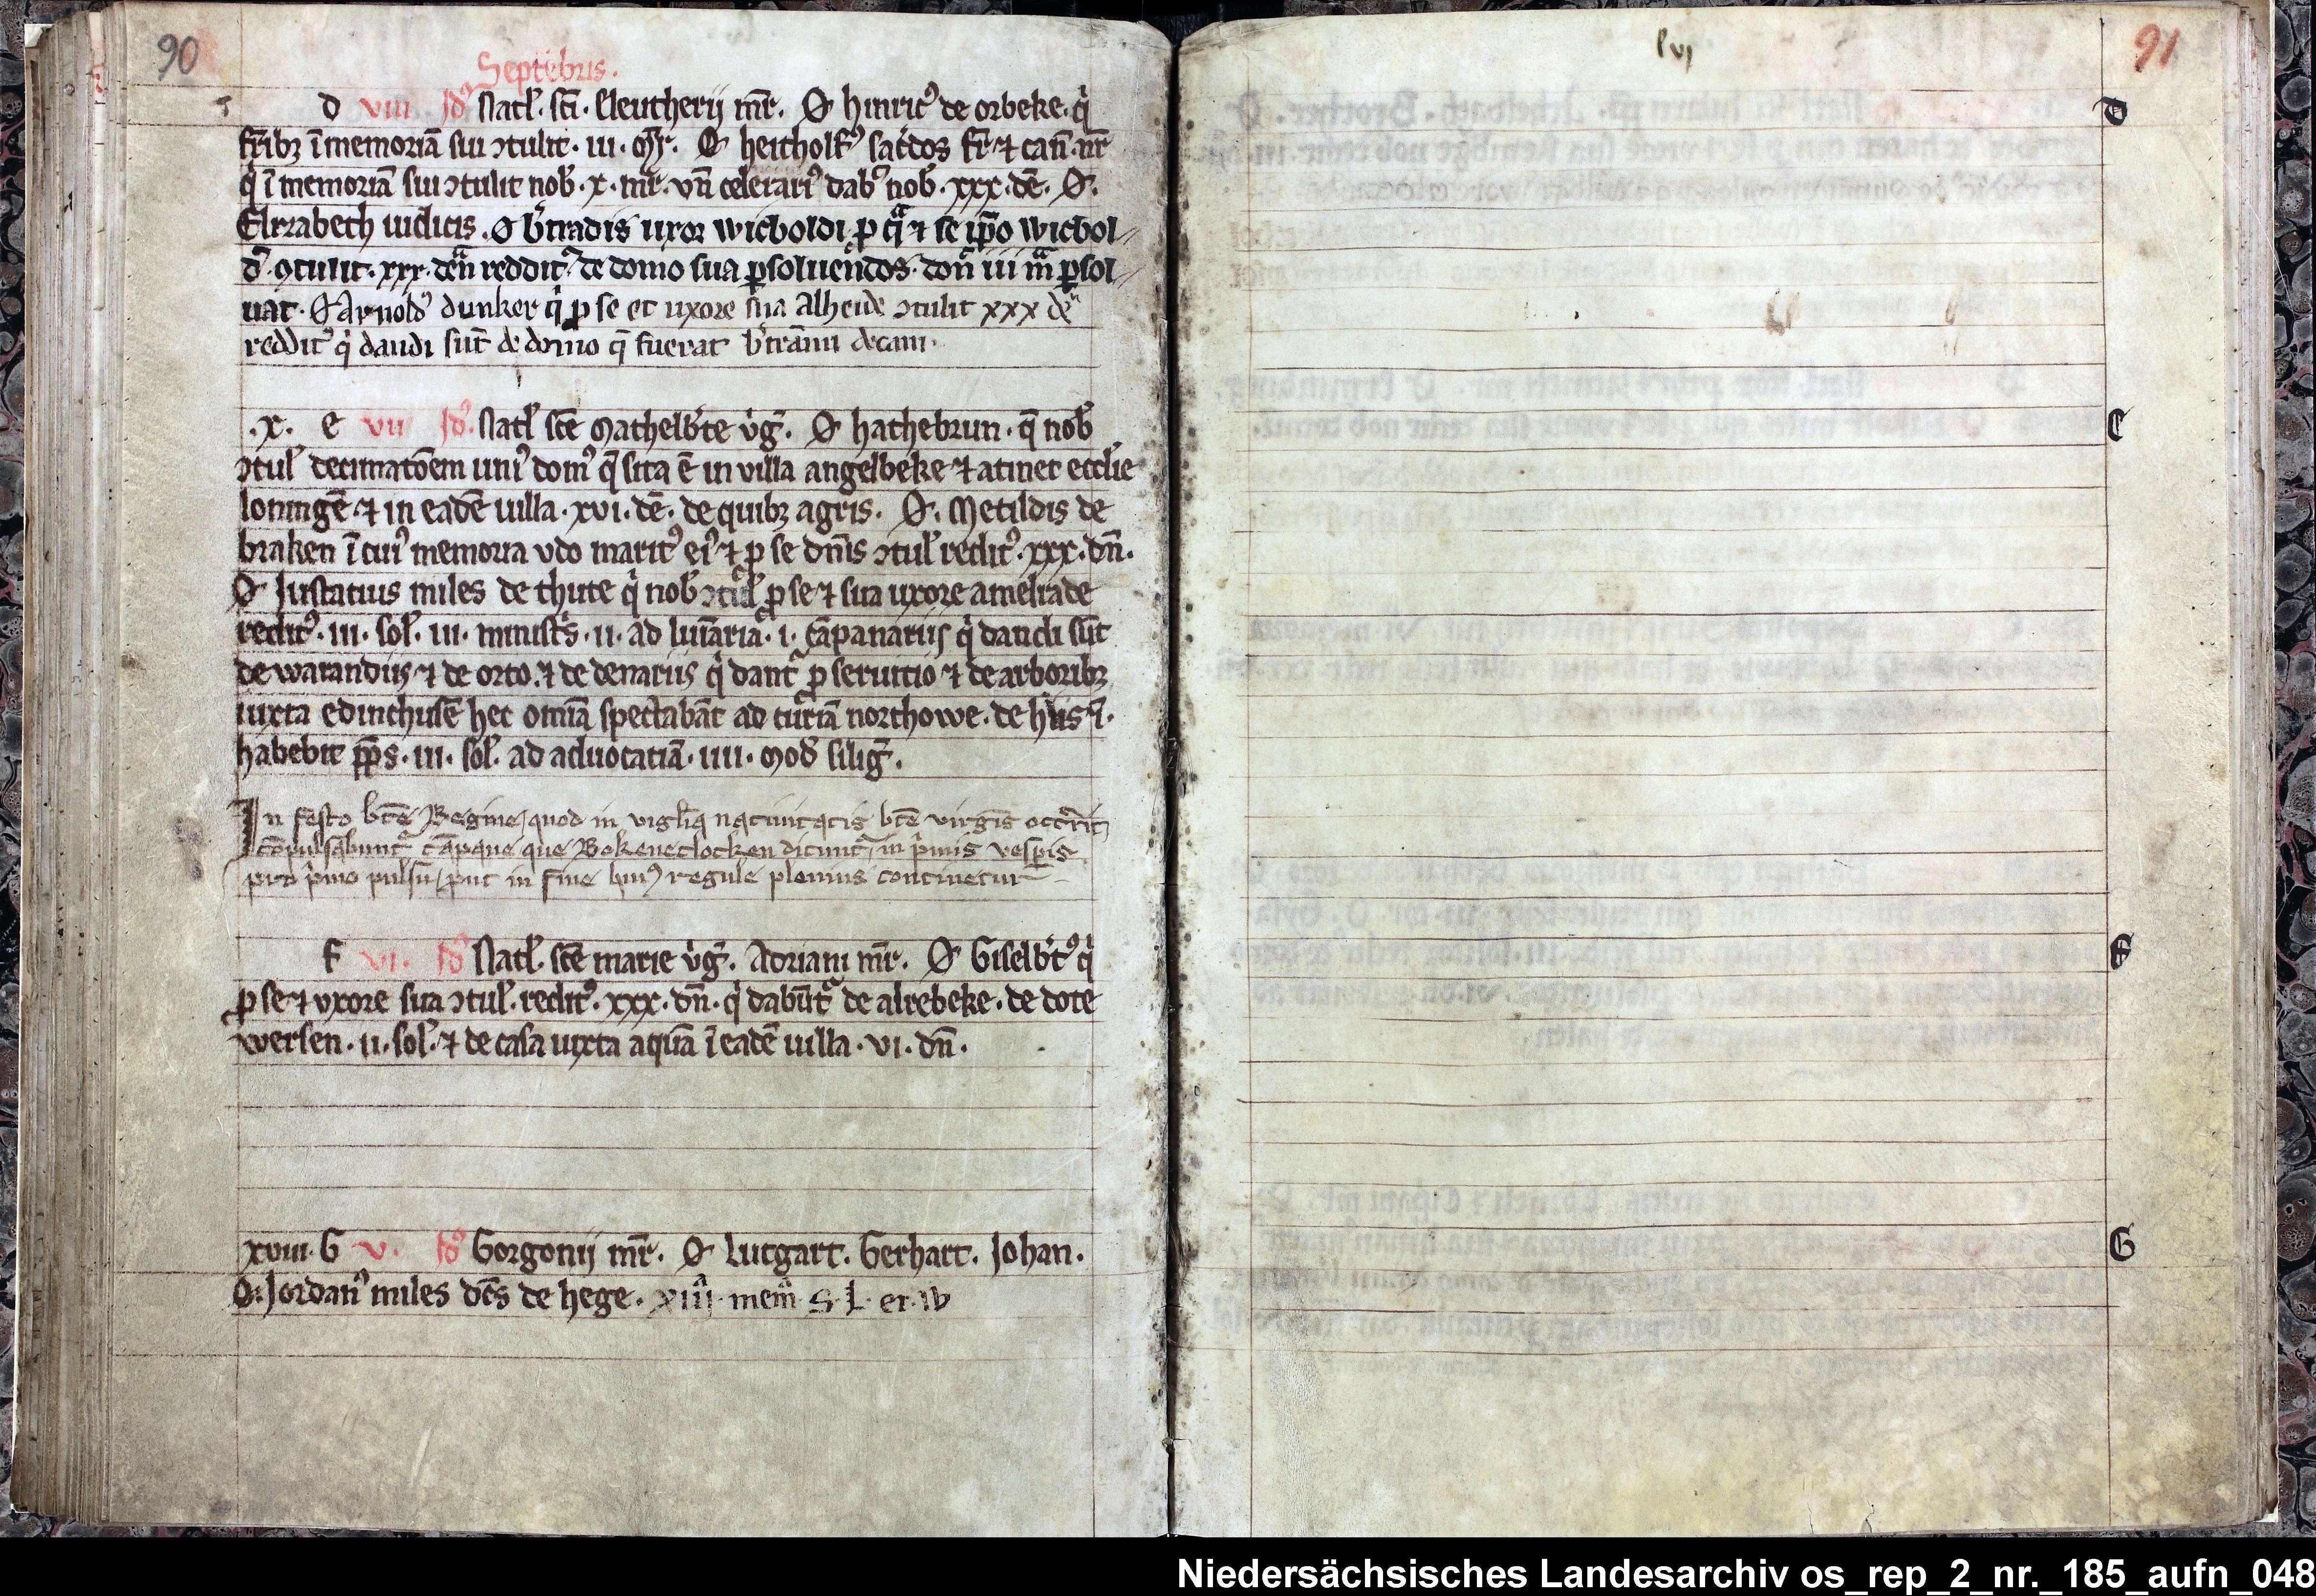 90
Septēbris.
D viii Idꝰ Natl̄. sc̄i. Eleutherij mr̄. O hinricꝰ de orbeke. q̇
fr̄ibꝫ ī memoriā sui ↄtulit. iii. mr̄. O heitholfꝰ sac̄dos fr̄ ⁊ can̄. nr̄
q̇ ī memoriā sui ↄtulit nob̄. x. mr̄. vn̄ celerariꝰ dabꝰ nob̄. xxx. dē. O.
Elyzabeth uidicis. O b̄tradis uxor wicboldi. p q̄ ⁊ se ip̄o wicbol
dꝰ ꝯtulit. xxx. den̄ reddit᷑ de domo sua ꝑsoluen̄dos. don̄ iii m̄ ꝑsol
uat. O Arnoldꝰ dunker q̇ ꝓ se et uxore sua Alheide ↄtulit xxx den̄
reddit᷑ q̇ dandi sūt de domo q̄ fuerat b̄trām̄i decani.
.x. E vii Idꝰ. Natl̄ sc̄e Mathelb̄te v̇g̅. O hathebrun. q̄ nob̄
ↄtul̄ decimatōem uniꝰ domꝰ q̄ sita ē in villa angelbeke ⁊ atinet eccl̄ie
loningē ⁊ in eadē uilla. xvi. dē. de quibꝫ agris. O. Metildis de
braken ī cuiꝰ memoria vdo maritꝰ eiꝰ ⁊ ꝓ se dn̄is ↄtul̄ reditꝰ. xxx. dn̄.
O Iustatius miles de thute q̇ nob̄ ↄtul̄ ꝓ se ⁊ sua uxore amelrade
reditꝰ. iii. sol̄. iii. minist̄s. ii. ad luīaria. i. cāpanariis q̇ dandi sūt
de warandiis ⁊ de orto. ⁊ de denariis q̇ dant᷑ ꝓ seruitio ⁊ de arboribꝫ
iuxta edinchusē hec omīa spectabāt ad curiā northowe. de his
habebit p̄p̄s. iii. sol̄. ad aduocatiā. iiii. mod̄ silig̅.
In festo bt̄e Regine quod in vigl̄ia natiuitatis bt̄e virgīs occr̄rit
cōpulsabunt᷑ cāpane que Bokeneclocken dicunt᷑ in p̄mis vesp̄is
pro p̄mo pulsu put in fine huiꝰ regule plenius continetur
F vi. Idꝰ Natl̄. sc̄e marie v̇g̅. Adriani mr̄. O Giselb̄tꝰ q̇
ꝓ se ⁊ vxore sua ↄtul̄. reditꝰ. xxx. dn̄. q̇ dabūt᷑ de alrebeke. de dote
wersen. ii. sol̄. ⁊ de casa iuxta aquā ī eadē uilla. vi. dn̄.
xviii. G v. Idꝰ Gorgonij mr̄. O Lutgart. Gerhart. Johan.
O. Jordanꝰ miles dc̄s de hege. xiiij. mem̄. S. L. et. W
lvj
91
D
E
F
G
Niedersächsisches Landesarchiv os_rep_2_nr._185_aufn_048